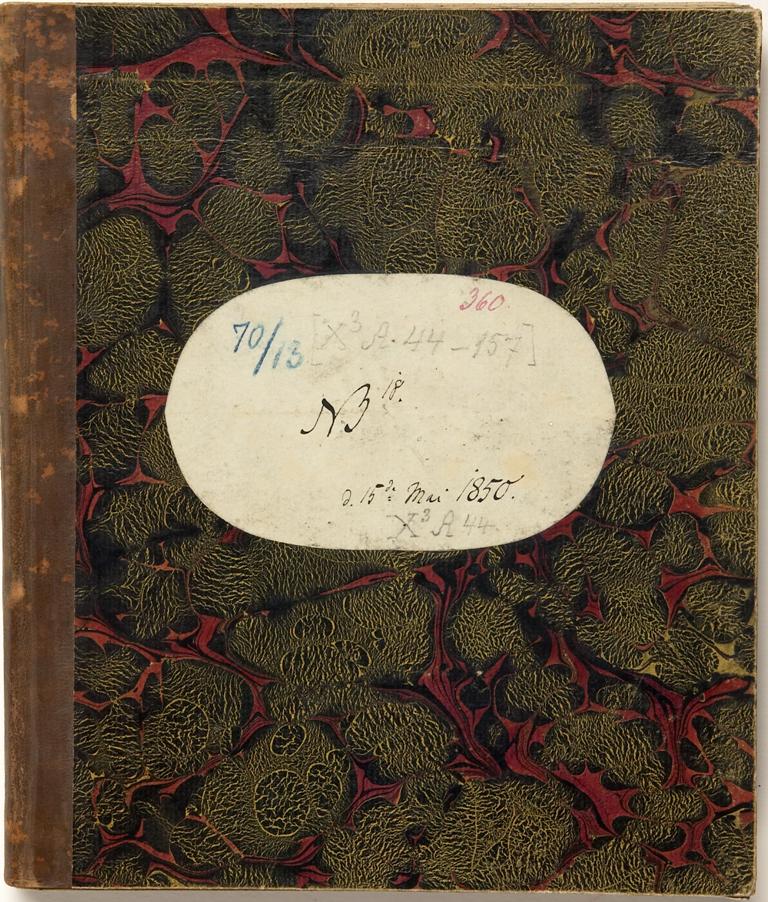 360.
70/13 [X³ A. 44 – 157]
NB 18.
d. 15de Mai 1850.
X³ A 44